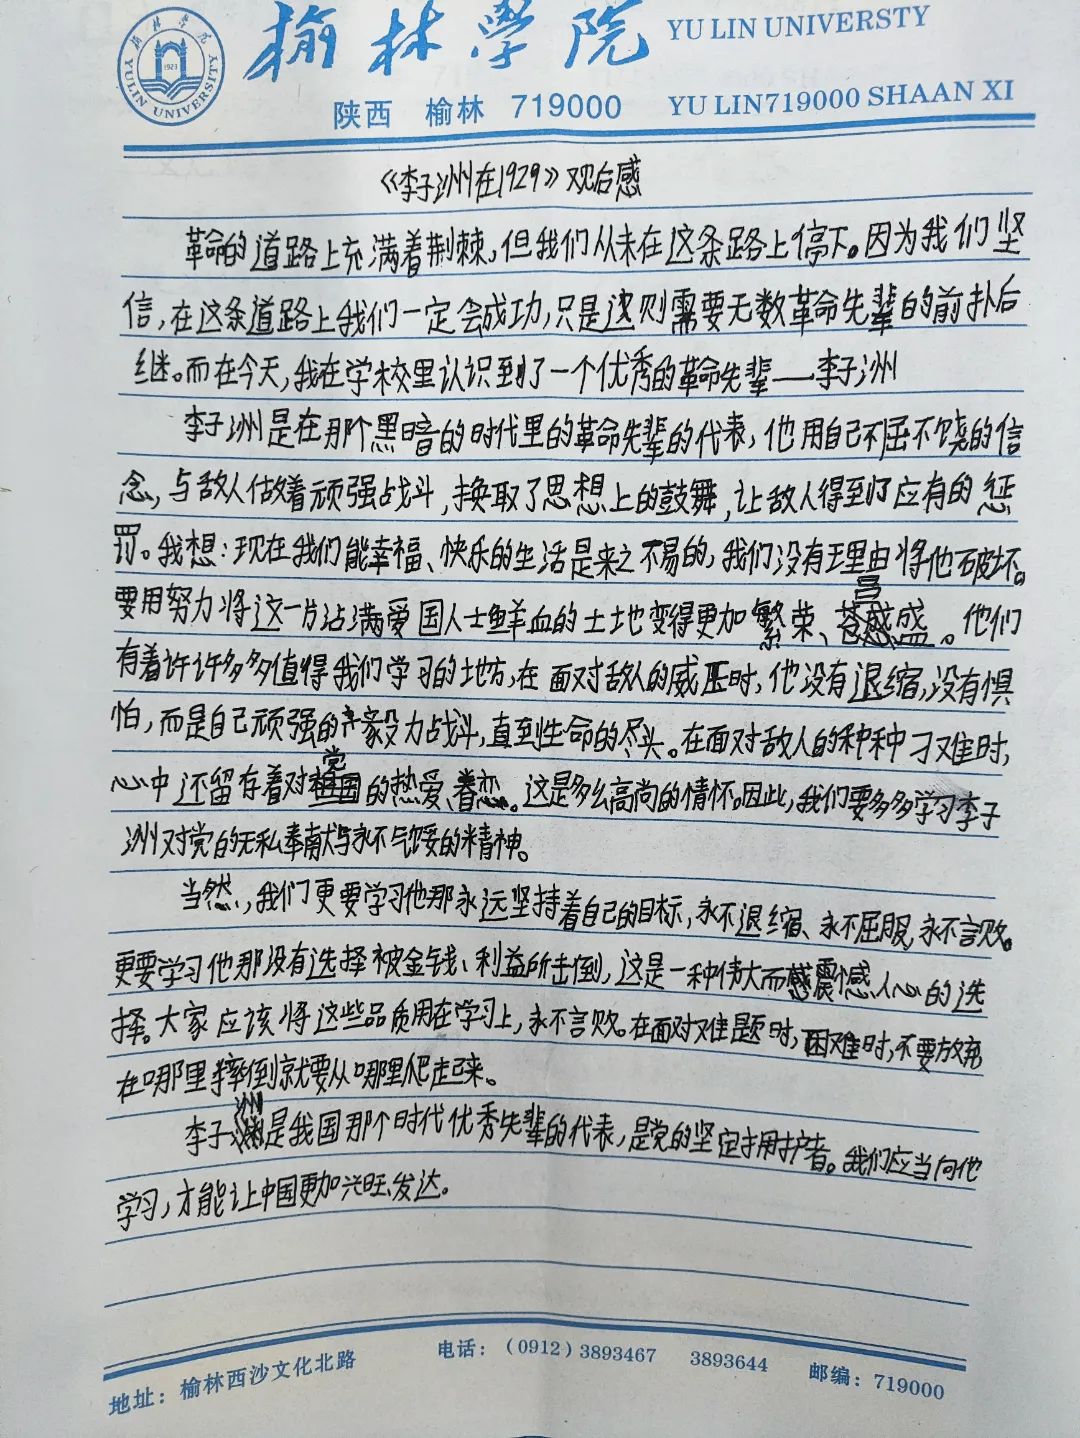 榆林学院 YU LIN UNIVERSTY
陕西 榆林 719000 YU LIN719000 SHAAN XI
榆林学院
1923
YULIN UNIVERSITY
《李子洲在1929》观后感
革命的道路上充满着荆棘,但我们从未在这条路上停下。因为我们坚
信,在这条道路上我们一定会成功,只是这则需要无数革命先辈的前扑后
继。而在今天,我在学校里认识到了一个优秀的革命先辈——李子洲
李子洲是在那个黑暗的时代里的革命先辈的代表,他用自己不屈不饶的信
念,与敌人做着顽强战斗,换取了思想上的鼓舞,让敌人得到了应有的惩
罚。我想:现在我们能幸福、快乐的生活是来之不易的,我们没有理由将他破坏。
要用努力将这一片沾满爱国人士鲜血的土地变得更加繁荣、昌盛。他们
有着许许多多值得我们学习的地方,在面对敌人的威压时,他没有退缩,没有惧
怕,而是自己顽强的毅力战斗,直到生命的尽头。在面对敌人的种种刁难时,
心中还留存着对党的热爱、眷恋。这是多么高尚的情怀。因此,我们要多多学习李子
洲对党的无私奉献与永不气馁的精神。
当然,我们更要学习他那永远坚持着自己的目标,永不退缩、永不屈服,永不言败。
更要学习他那没有选择被金钱、利益所击倒,这是一种伟大而震憾人心的选
择。大家应该将这些品质用在学习上,永不言败。在面对难题时,困难时,不要放弃
在哪里摔倒就要从哪里爬起来。
李子洲是我国那个时代优秀先辈的代表,是党的坚定拥护者。我们应当向他
学习,才能让中国更加兴旺、发达。
地址:榆林西沙文化北路 电话:(0912)3893467 3893644 邮编:719000